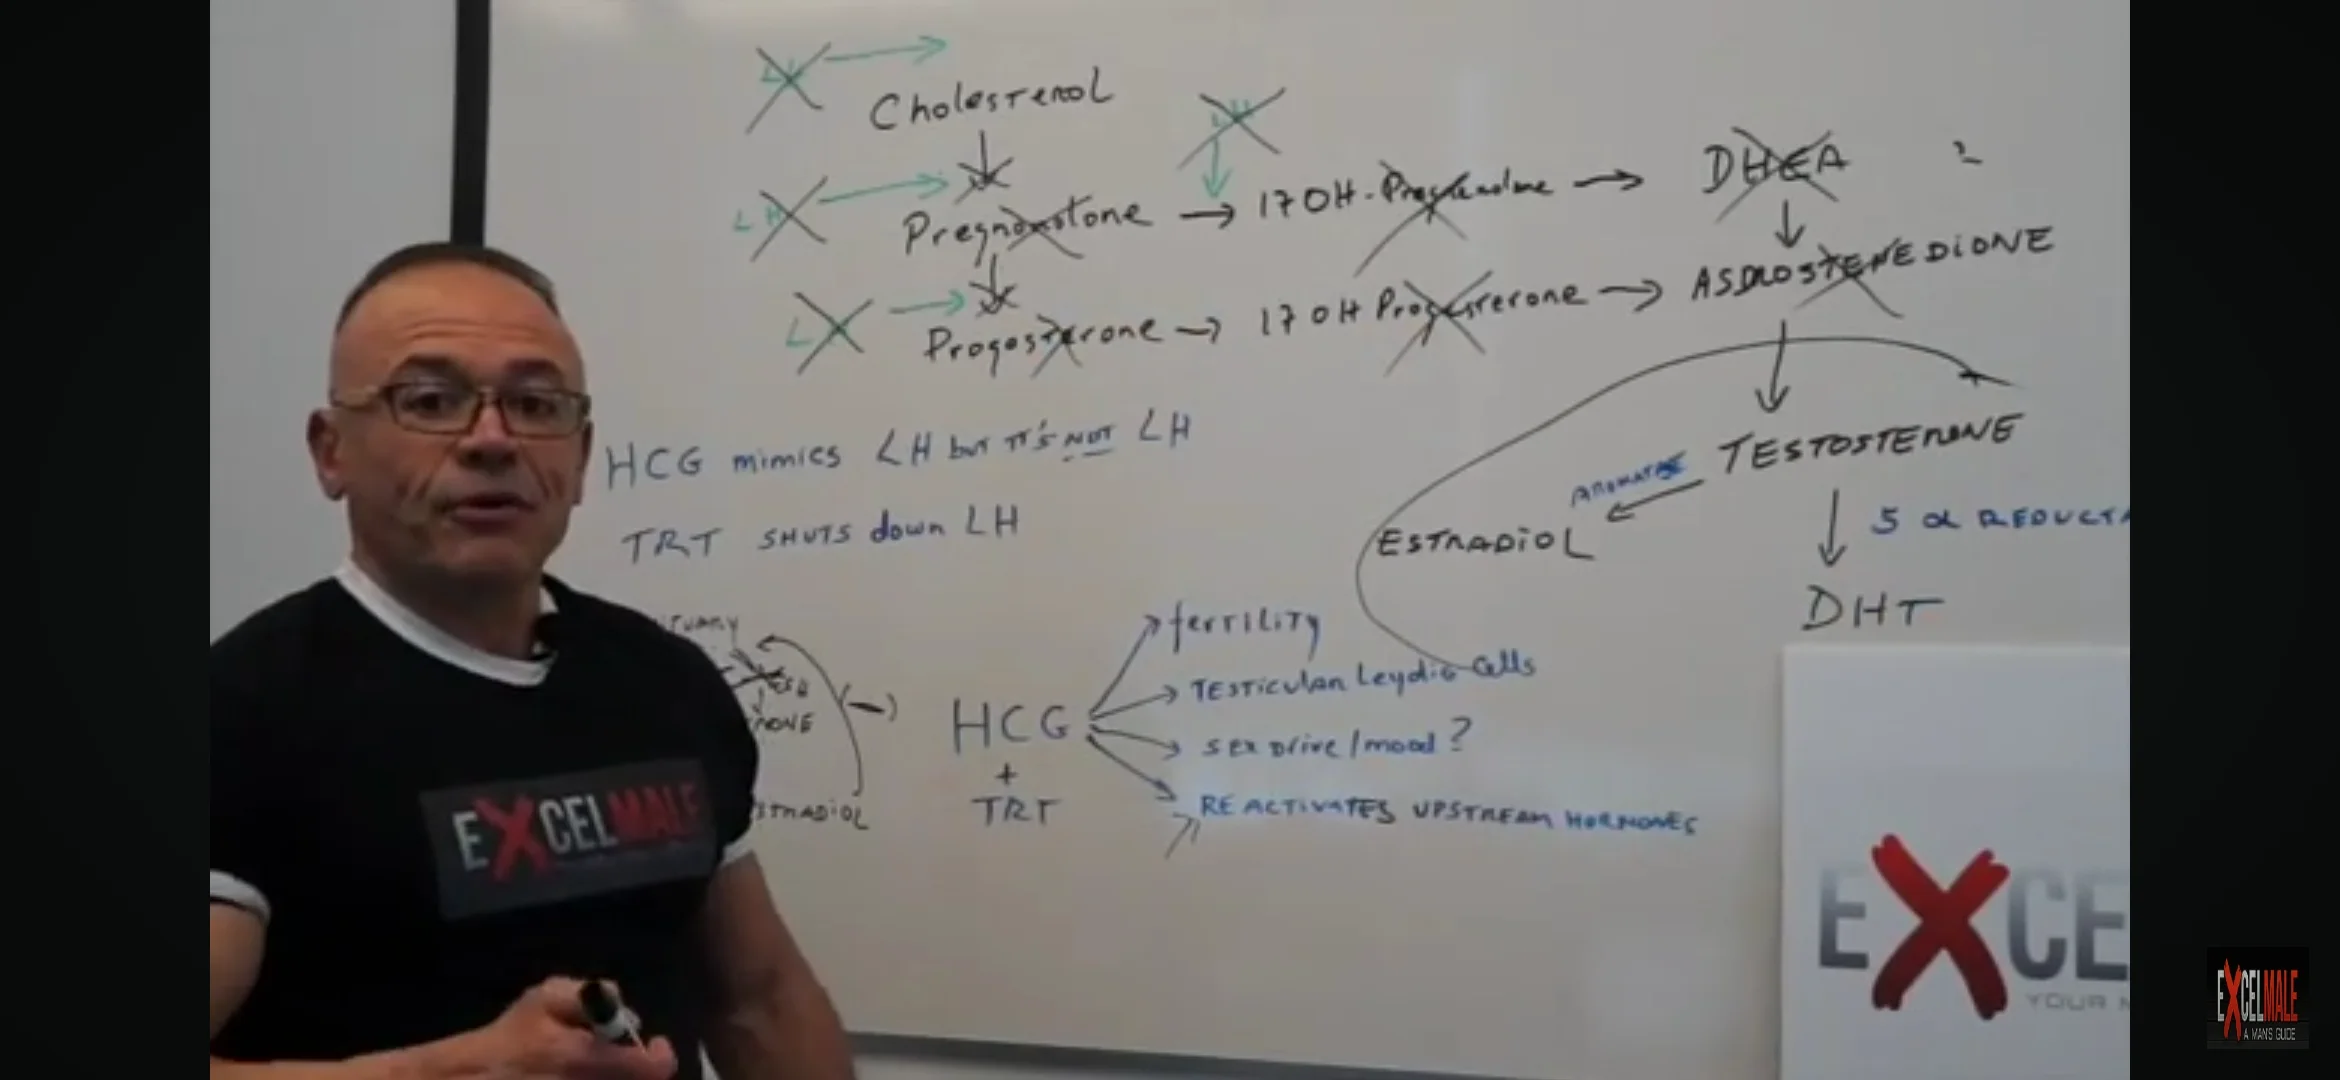 LH
Cholesterol
LH
LH
Pregnonotone → 17 OH - Pregnenolone → DHEA
L
Progosterone → 17 OH Progesterone → ASDROSTENEDIONE
HCG mimics LH but it's NOT LH
TESTOSTERONE
AROMATASE
ESTRADIOL
5 α REDUCTA
TRT SHUTS down LH
DHT
ITUARY
fertility
TESTICULAR Leydig Cells
RONE
(-)
HCG
+
TRT
SEX Drive/mood?
STRADIOL
REACTIVATES UPSTREAM HORMONES
EXCELMALE
EXCE
YOUR M
EXCELMALE
A MAN'S GUIDE